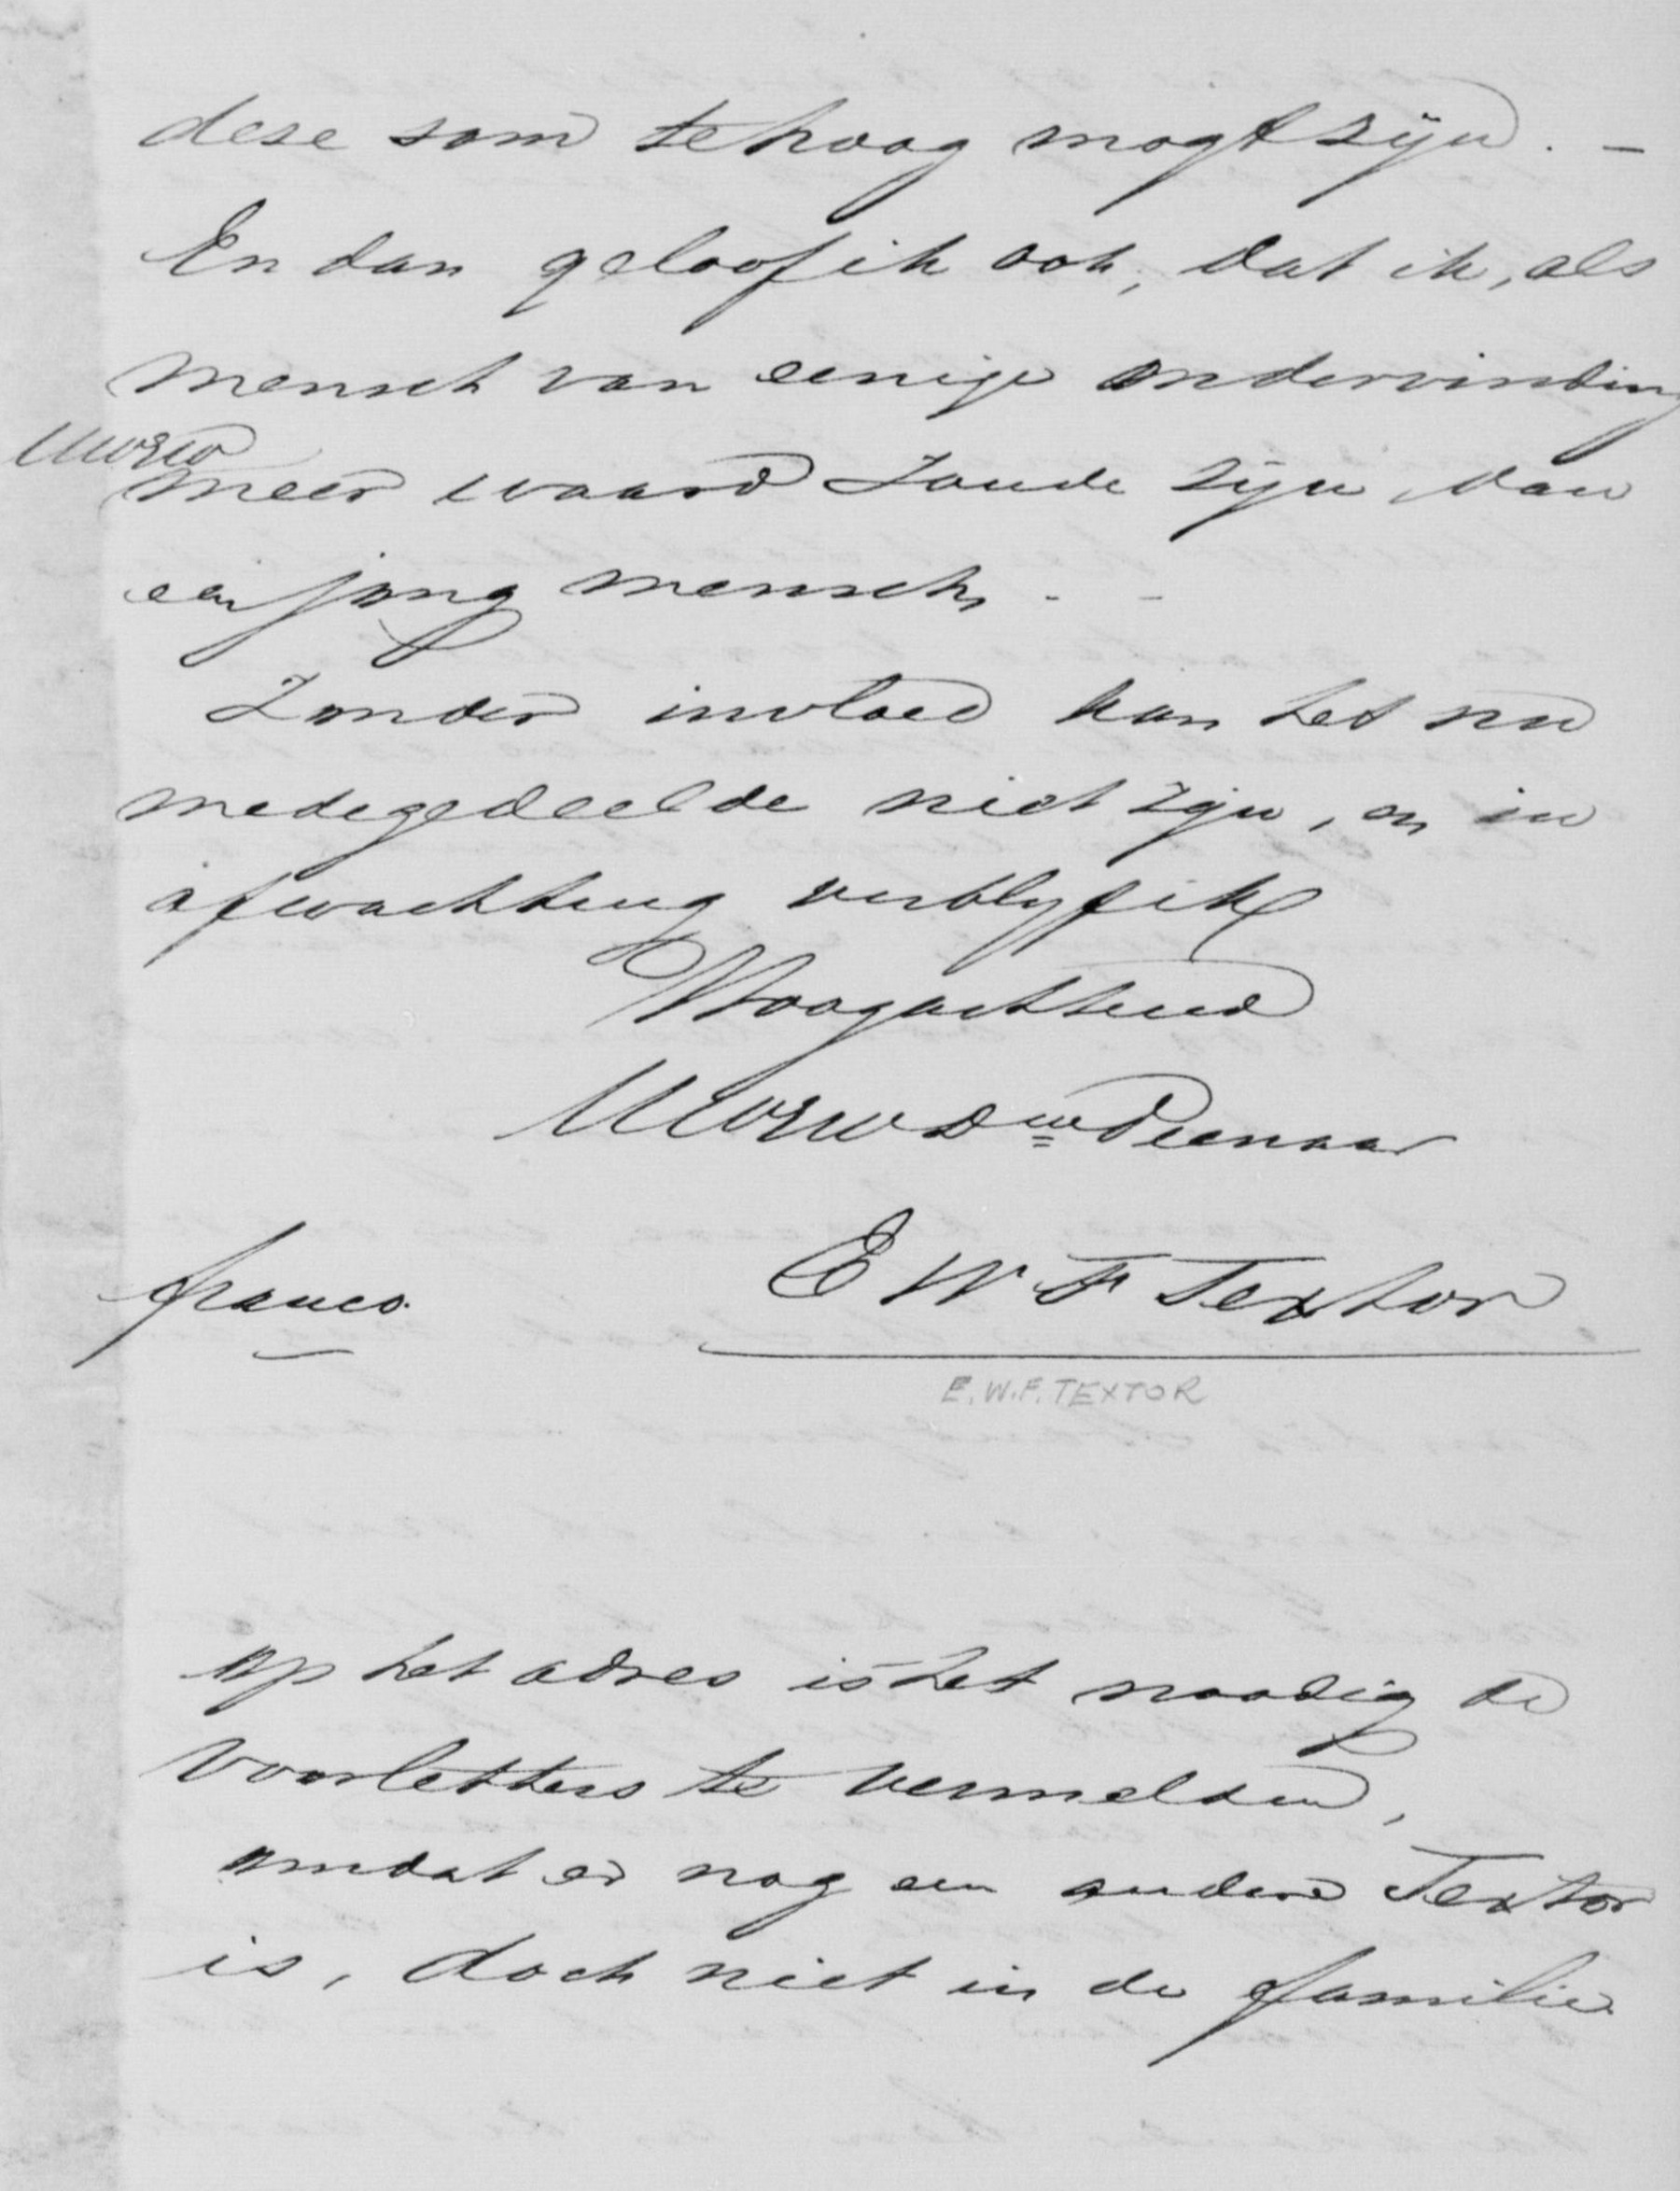 dese som te hoog mogt zijn. –
En dan geloof ik ook, dat ik, als
mensch van eenige ondervinding
UWEW
meer waard zoude zijn dan
een jong mensch. - -
Zonder invloed kan het nu
medegedeelde niet zijn, en in
afwachting verblyf ik
Hoogachtend
UWEW Dw Dienaar
franco.
E W F Textor
E.W.F. TEXTOR
op het adres is het noodig de
voorletters te vermelden,
omdat er nog een andere Textor
is, doch niet in de familie